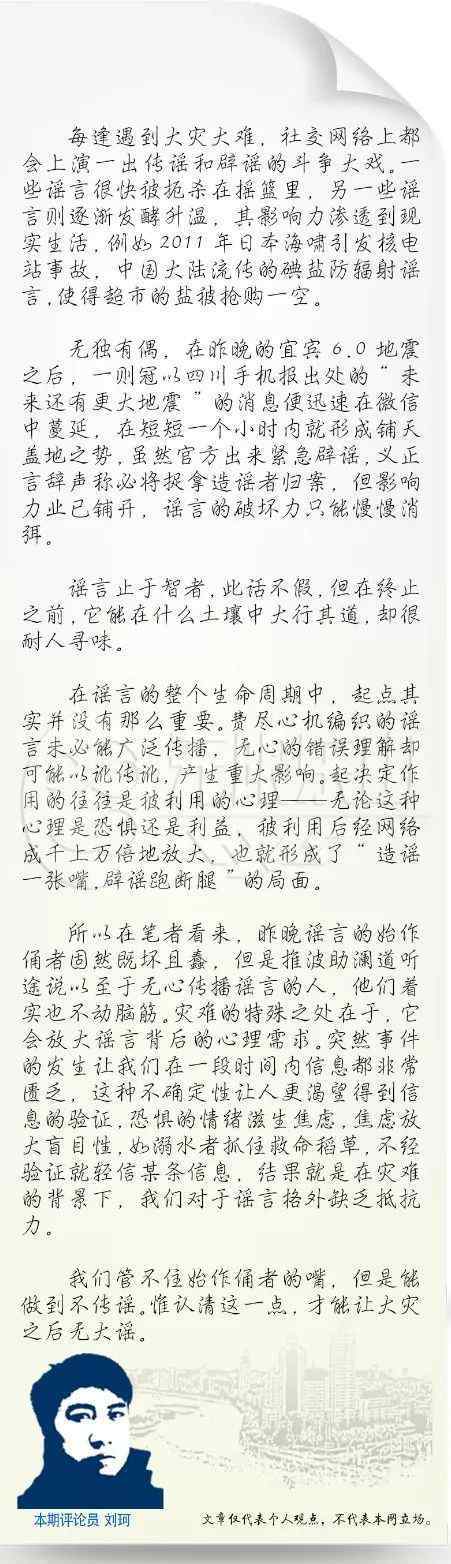 每逢遇到大灾大难，社交网络上都
会上演一出传谣和辟谣的斗争大戏。一
些谣言很快被扼杀在摇篮里，另一些谣
言则逐渐发酵升温，其影响力渗透到现
实生活，例如 2011 年日本海啸引发核电
站事故，中国大陆流传的碘盐防辐射谣
言，使得超市的盐被抢购一空。
无独有偶，在昨晚的宜宾 6.0 地震
之后，一则冠以四川手机报出处的“未
来还有更大地震”的消息便迅速在微信
中蔓延，在短短一个小时内就形成铺天
盖地之势，虽然官方出来紧急辟谣，义正
言辞声称必将捉拿造谣者归案，但影响
力业已铺开，谣言的破坏力只能慢慢消
弭。
谣言止于智者，此话不假，但在终止
之前，它能在什么土壤中大行其道，却很
耐人寻味。
在谣言的整个生命周期中，起点其
实并没有那么重要。费尽心机编织的谣
言未必能广泛传播，无心的错误理解却
可能以讹传讹，产生重大影响。起决定作
用的往往是被利用的心理——无论这种
心理是恐惧还是利益，被利用后经网络
成千上万倍地放大，也就形成了“造谣
一张嘴，辟谣跑断腿”的局面。
所以在笔者看来，昨晚谣言的始作
俑者固然既坏且蠢，但是推波助澜道听
途说以至于无心传播谣言的人，他们着
实也不动脑筋。灾难的特殊之处在于，它
会放大谣言背后的心理需求。突然事件
的发生让我们在一段时间内信息都非常
匮乏，这种不确定性让人更渴望得到信
息的验证，恐惧的情绪滋生焦虑，焦虑放
大盲目性，如溺水者抓住救命稻草，不经
验证就轻信某条信息，结果就是在灾难
的背景下，我们对于谣言格外缺乏抵抗
力。
我们管不住始作俑者的嘴，但是能
做到不传谣。惟认清这一点，才能让大灾
之后无大谣。
本期评论员 刘珂
文章仅代表个人观点，不代表本网立场。